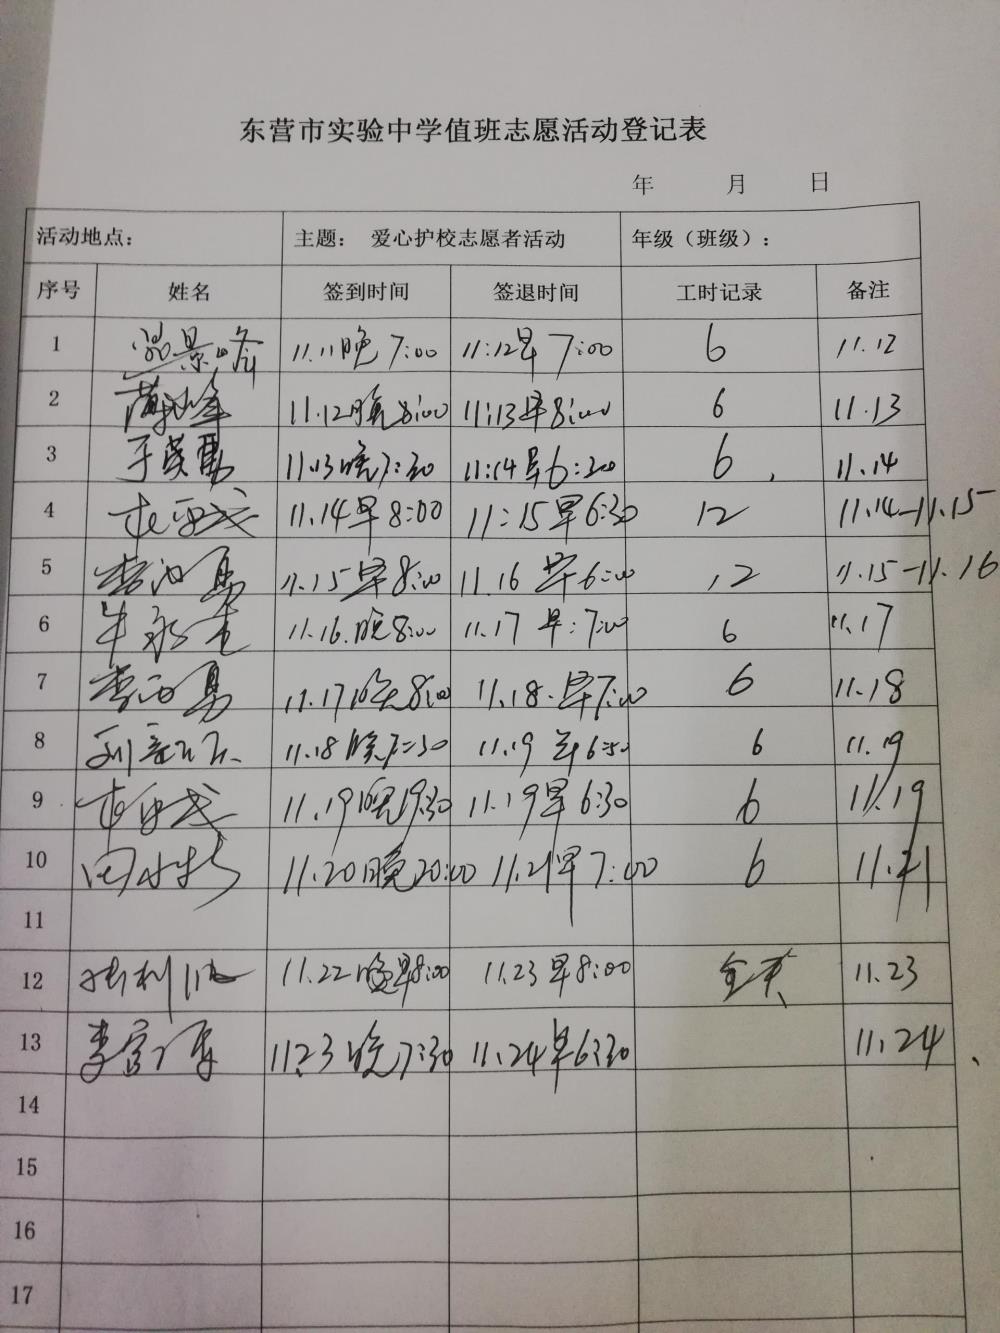 东营市实验中学值班志愿活动登记表
年 月 日
活动地点： 主题： 爱心护校志愿者活动 年级（班级）：
序号 姓名 签到时间 签退时间 工时记录 备注
1 景峰 11.11晚7:00 11:12早7:00 6 11.12
2 11.12晚8:00 11:13早8:00 6 11.13
3 于英勇 11.13晚7:30 11:14早6:30 6 11.14
4 11.14早8:00 11:15早6:30 12 11.14-11.15
5 李勇 11.15早8:00 11.16早6:00 12 11.15-11.16
6 牛永 11.16.晚8:00 11.17早:7:00 6 11.17
7 李勇 11.17晚8:00 11.18.早7:00 6 11.18
8 刘 11.18晚7:30 11.19早6:30 6 11.19
9 11.19晚19:30 11.19早6:30 6 11.19
10 田 11.20晚20:00 11.21早7:00 6 11.21
11
12 11.22早8:00 11.23早8:00 全天 11.23
13 李富 11.23晚7:30 11.24早6:30 11.24
14
15
16
17